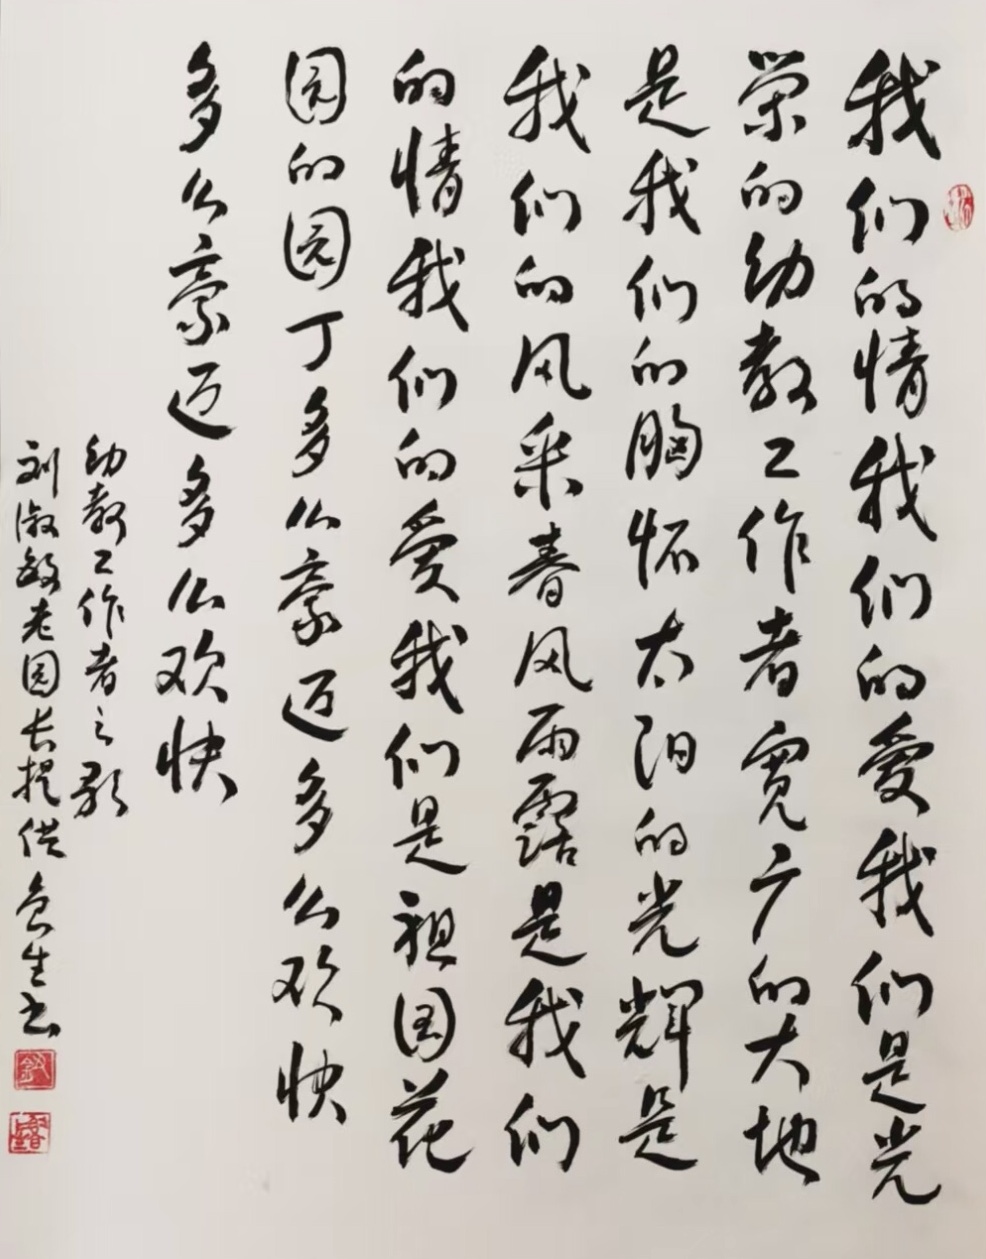 我们的情我们的爱我们是光
荣的幼教工作者宽广的大地
是我们的胸怀太阳的光辉是
我们的风采春风雨露是我们
的情我们的爱我们是祖国花
园的园丁多么豪迈多么欢快
多么豪迈多么欢快
幼教工作者之歌
刘淑敏老园长提供 生书